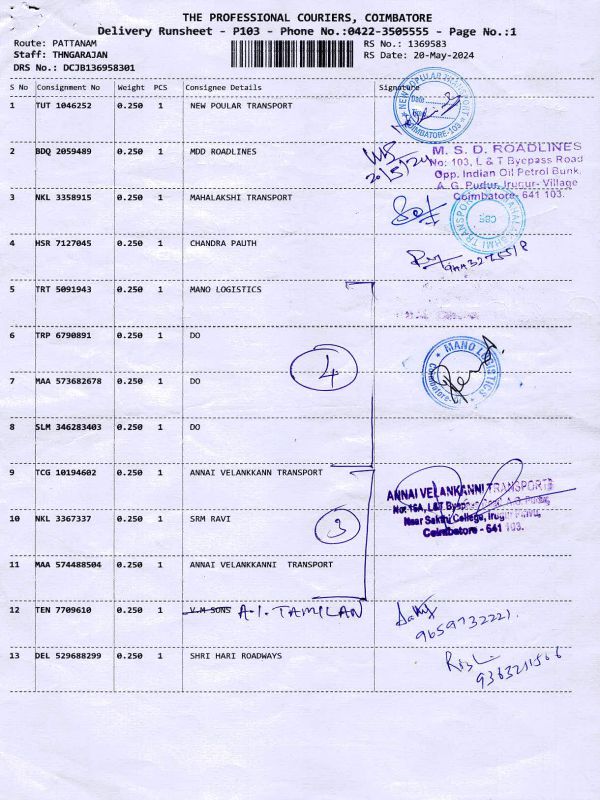 THE PROFESSIONAL COURIERS, COIMBATORE
Delivery Runsheet - P103 - Phone No.:0422-3505555 - Page No.:1
Route: PATTANAM RS No.: 1369583
Staff: THNGARAJAN RS Date: 20-May-2024
DRS No.: DCJB136958301
S No Consignment No Weight PCS Consignee Details Signature
1 TUT 1046252 0.250 1 NEW POULAR TRANSPORT
NEW POPULAR TRANSPORT
Date
COIMBATORE-103
2 BDQ 2059489 0.250 1 MDD ROADLINES
20/5/24
M. S. D. ROADLINES
No: 103, L & T Byepass Road
Opp. Indian Oil Petrol Bunk,
A. G. Pudur, Irugur- Village
Coimbatore- 641 103.
3 NKL 3358915 0.250 1 MAHALAKSHI TRANSPORT
MAHALAKSHMI TRANSPORT
CBE
4 HSR 7127045 0.250 1 CHANDRA PAUTH
5 TRT 5091943 0.250 1 MANO LOGISTICS
6 TRP 6790891 0.250 1 DO
4
MANO LOGISTICS
Coimbatore
7 MAA 573682678 0.250 1 DO
8 SLM 346283403 0.250 1 DO
9 TCG 10194602 0.250 1 ANNAI VELANKKANN TRANSPORT
ANNAI VELANKANNI TRANSPORTS
Near Sakthi College, Irugur
Coimbatore - 641 103.
10 NKL 3367337 0.250 1 SRM RAVI
3
11 MAA 574488504 0.250 1 ANNAI VELANKKANNI TRANSPORT
12 TEN 7709610 0.250 1 V.M SONS A.I. TAMILAN
9659732221.
13 DEL 529688299 0.250 1 SHRI HARI ROADWAYS
9363211566